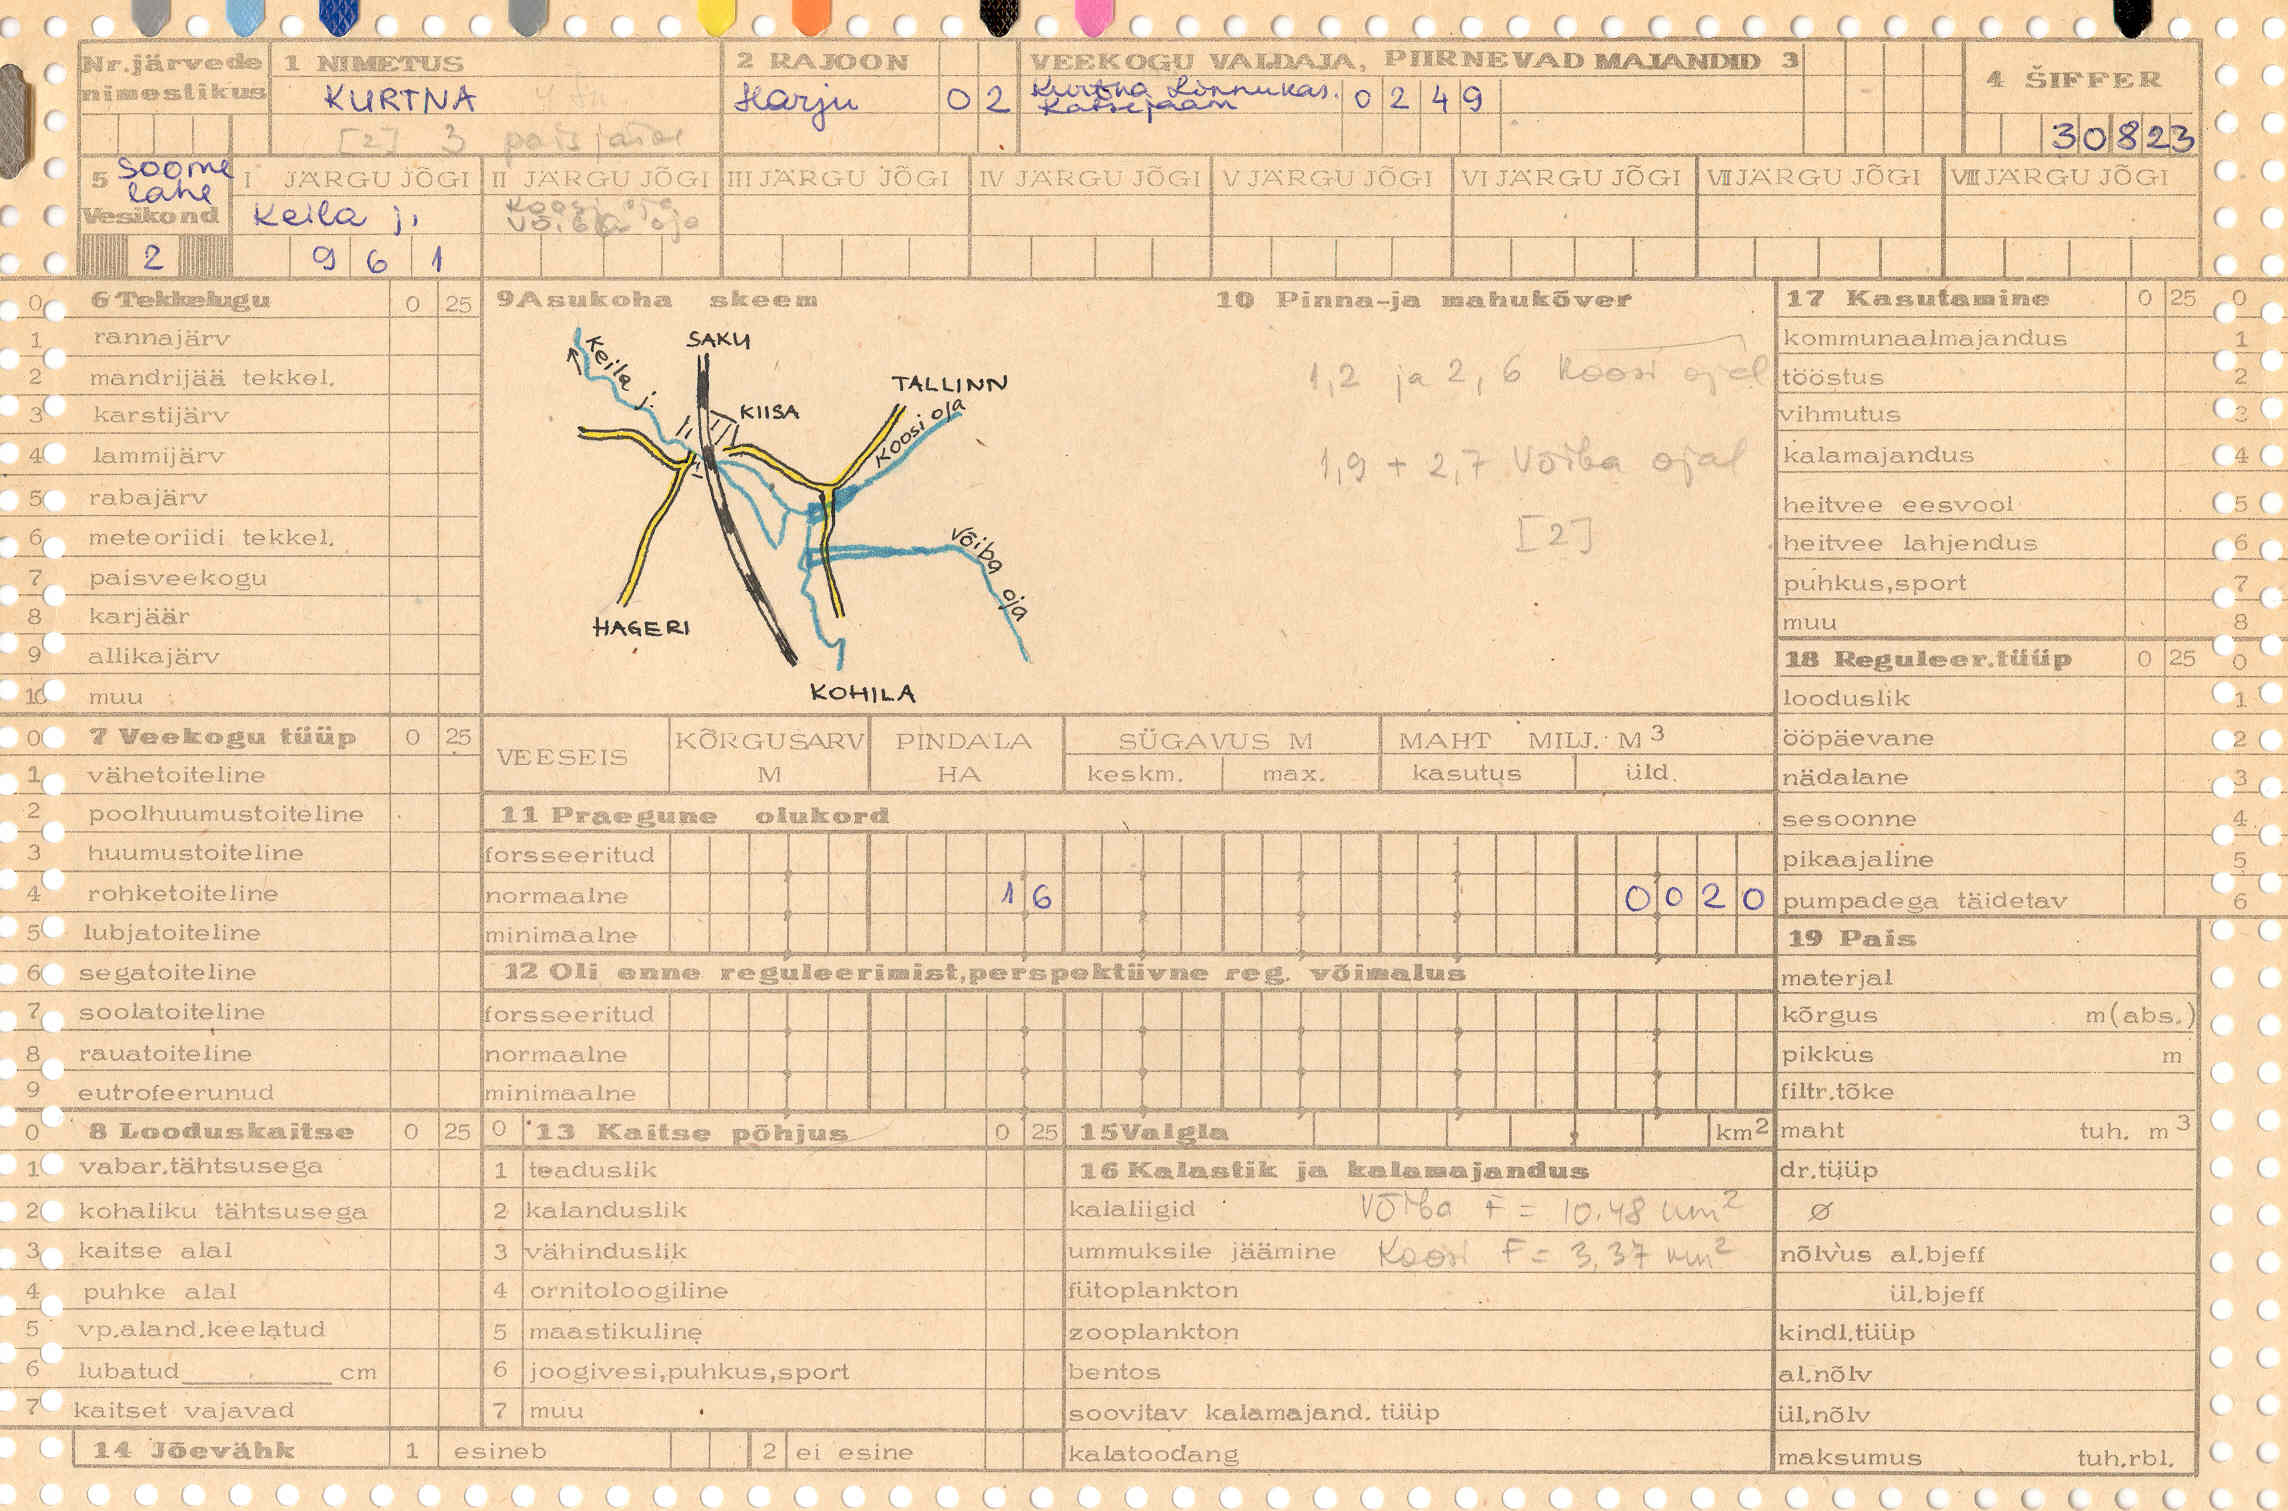 Nr.järvede nimestikus
1 NIMETUS
KURTNA
[2] 3 paisjärve
2 RAJOON
Harju 02
VEEKOGU VALDAJA, PIIRNEVAD MAJANDID 3
Kurtna Linnukas.
Katsejaam
0249
4 ŠIFFER
30823
5 Soome lahe
Vesikond
2
I JÄRGU JÕGI
Keila j.
961
II JÄRGU JÕGI
Koosi oja
Võiba oja
III JÄRGU JÕGI
IV JÄRGU JÕGI
V JÄRGU JÕGI
VI JÄRGU JÕGI
VII JÄRGU JÕGI
VIII JÄRGU JÕGI
0 6 Tekkelugu 0 25
1 rannajärv
2 mandrijää tekkel.
3 karstijärv
4 lammijärv
5 rabajärv
6 meteoriidi tekkel.
7 paisveekogu
8 karjäär
9 allikajärv
10 muu
9 Asukoha skeem
Keila j.
SAKU
KIISA
TALLINN
Koosi oja
Võiba oja
HAGERI
KOHILA
10 Pinna-ja mahukõver
1,2 ja 2,6 Koosi ojal
1,9 + 2,7 Võiba ojal
[2]
17 Kasutamine 0 25 0
kommunaalmajandus 1
tööstus 2
vihmutus 3
kalamajandus 4
heitvee eesvool 5
heitvee lahjendus 6
puhkus,sport 7
muu 8
18 Reguleer.tüüp 0 25 0
looduslik 1
ööpäevane 2
nädalane 3
sesoonne 4
pikaajaline 5
pumpadega täidetav 6
0 7 Veekogu tüüp 0 25
1 vähetoiteline
2 poolhuumustoiteline
3 huumustoiteline
4 rohketoiteline
5 lubjatoiteline
6 segatoiteline
7 soolatoiteline
8 rauatoiteline
9 eutrofeerunud
VEESEIS
KÕRGUSARV M
PINDALA HA
SÜGAVUS M
keskm. max.
MAHT MILJ. M3
kasutus üld.
11 Praegune olukord
forsseeritud
normaalne 16 0020
minimaalne
12 Oli enne reguleerimist,perspektiivne reg. võimalus
forsseeritud
normaalne
minimaalne
19 Pais
materjal
kõrgus m(abs.)
pikkus m
filtr.tõke
maht tuh. m3
dr.tüüp
ø
nõlvus al.bjeff
ül.bjeff
kindl.tüüp
al.nõlv
ül.nõlv
maksumus tuh.rbl.
0 8 Looduskaitse 0 25
1 vabar.tähtsusega
2 kohaliku tähtsusega
3 kaitse alal
4 puhke alal
5 vp.aland.keelatud
6 lubatud cm
7 kaitset vajavad
0 13 Kaitse põhjus 0 25
1 teaduslik
2 kalanduslik
3 vähinduslik
4 ornitoloogiline
5 maastikuline
6 joogivesi,puhkus,sport
7 muu
15 Valgla km2
16 Kalastik ja kalamajandus
kalaliigid Võiba F = 10,48 km2
ummuksile jäämine Koosi F = 3,37 km2
fütoplankton
zooplankton
bentos
soovitav kalamajand. tüüp
kalatoodang
14 Jõevähk 1 esineb 2 ei esine